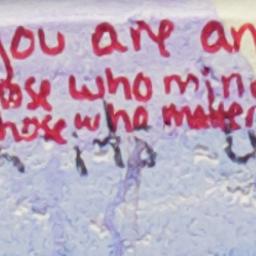 you are an
ose who min
hose who matter